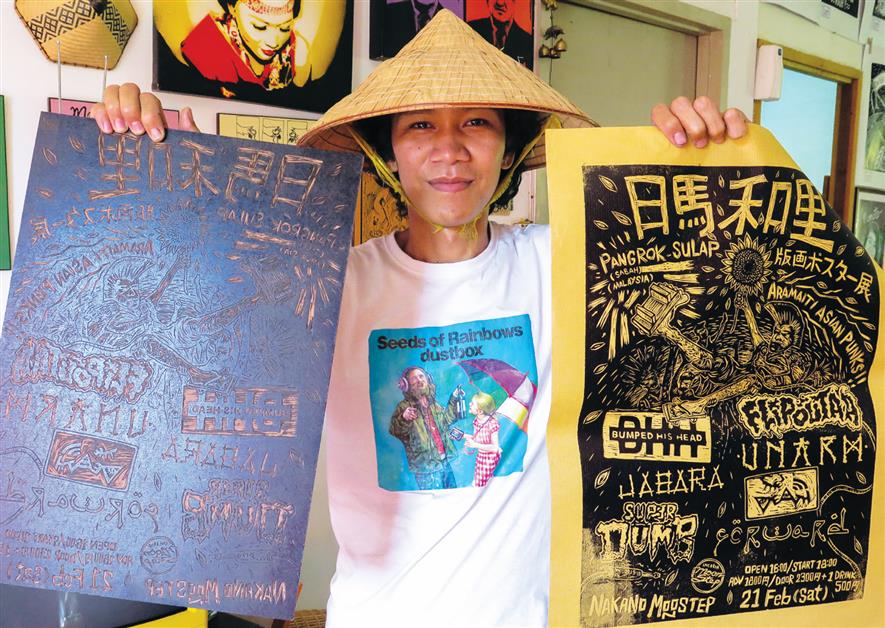 Seeds of Rainbows
dustbox
日馬和里
PANGROK SULAP
(SABAH)
(MALAYSIA)
版画ポスター展
ARAMAITI ASIAN PUNKS!!
FLiPOUT AA
BHH
BUMPED HIS HEAD
UNARM
JABARA
SUPER DUMB
förward
OPEN 18:00/START 18:30
ADV 1800円/DOOR 2300円+1 DRINK 500円
NAKANO MOOSTEP
21 Feb (Sat)